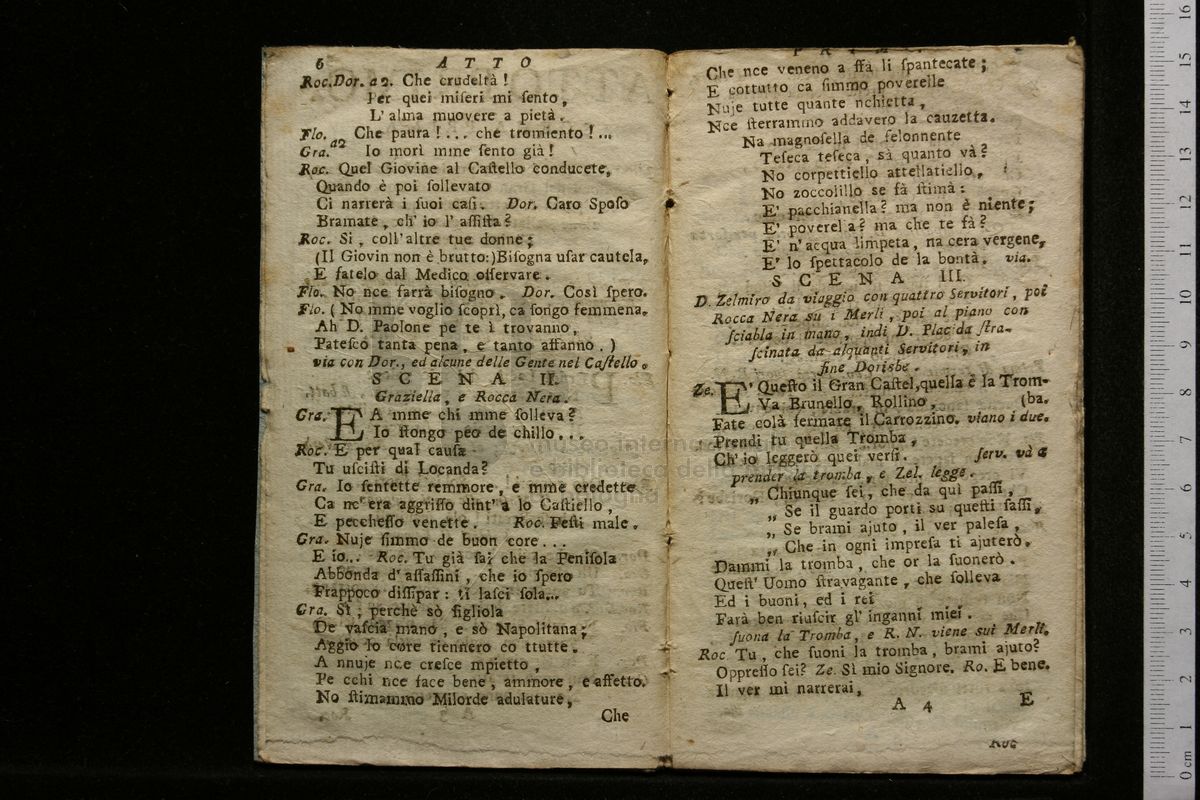 6 ATTO
Roc.Dor. a 2. Che crudeltà!
Per quei miſeri mi ſento,
L'alma muovere a pietà.
Flo. a2 Che paura!... che tromiento!...
Gra. Io morì mme ſento già!
Roc. Quel Giovine al Caſtello conducete,
Quando è poi ſollevato
Ci narrerà i ſuoi caſi. Dor. Caro Spoſo
Bramate, ch'io l'aſſiſta?
Roc. Sì, coll'altre tue donne;
(Il Giovin non è brutto:) Biſogna uſar cautela,
E fatelo dal Medico oſſervare.
Flo. No nce farrà biſogno. Dor. Così ſpero.
Flo. (No mme voglio ſcoprì, ca ſongo femmena.
Ah D. Paolone pe te ì trovanno,
Pateſco tanta pena, e tanto affanno.)
via con Dor., ed alcune delle Gente nel Caſtello.
SCENA II.
Graziella, e Rocca Nera.
Gra. E A mme chi mme ſolleva?
Io ſtongo peo de chillo...
Roc. E per qual cauſa
Tu uſciſti di Locanda?
Gra. Io ſentette remmore, e mme credette
Ca nc'era aggriſſo dint'a lo Caſtiello,
E pecchеſſo venette. Roc. Feſti male.
Gra. Nuje ſimmo de buon core...
E io... Roc. Tu già ſai che la Peniſola
Abbonda d'aſſaſſini, che io ſpero
Frappoco diſſipar: ti laſci ſola...
Gra. Sì, perchè sò figliola
De vaſcia mano, e sò Napolitana;
Aggio lo core tiennero co ttutte.
A nnuje nce creſce mpietto,
Pe cchi nce face bene, ammore, e affetto.
No ſtimammo Milorde adulature,
Che
PRIMO.
Che nce veneno a ffà li ſpantecate;
E cottutto ca ſimmo poverelle
Nuje tutte quante nchietta,
Nce ſterrammo addavero la cauzetta.
Na magnoſella de felonnente
Teſeca teſeca, sà quanto và?
No corpettiello attellatiello,
No zoccolillo se fà ſtimà:
E' pacchianella? ma non è niente;
E' poverella? ma che te fà?
E' n'acqua limpeta, na cera vergene,
E' lo ſpettacolo de la bontà. via.
SCENA III.
D. Zelmiro da viaggio con quattro Servitori, poi
Rocca Nera su i Merli, poi al piano con
ſciabla in mano, indi D. Placida ſtra-
ſcinata da alquanti Servitori, in
fine Dorisbe.
Ze. E' Queſto il Gran Caſtel, quella è la Trom-
Va Brunello, Rollino, (ba.
Fate colà fermare il Carrozzino. viano i due.
Prendi tu quella Tromba,
Ch'io leggerò quei verſi. ſerv. và a
prender la tromba, e Zel. legge.
„ Chiunque ſei, che da quì paſſi,
„ Se il guardo porti su queſti ſaſſi,
„ Se brami ajuto, il ver paleſa,
„ Che in ogni impreſa ti ajuterò.
Dammi la tromba, che or la ſuonerò.
Queſt'Uomo ſtravagante, che ſolleva
Ed i buoni, ed i rei
Farà ben riuſcir gl'inganni miei.
ſuona la Tromba, e R. N. viene sui Merli.
Roc Tu, che ſuoni la tromba, brami ajuto?
Oppreſſo ſei? Ze. Sì mio Signore. Ro. E bene.
Il ver mi narrerai,
A 4 E
Roc